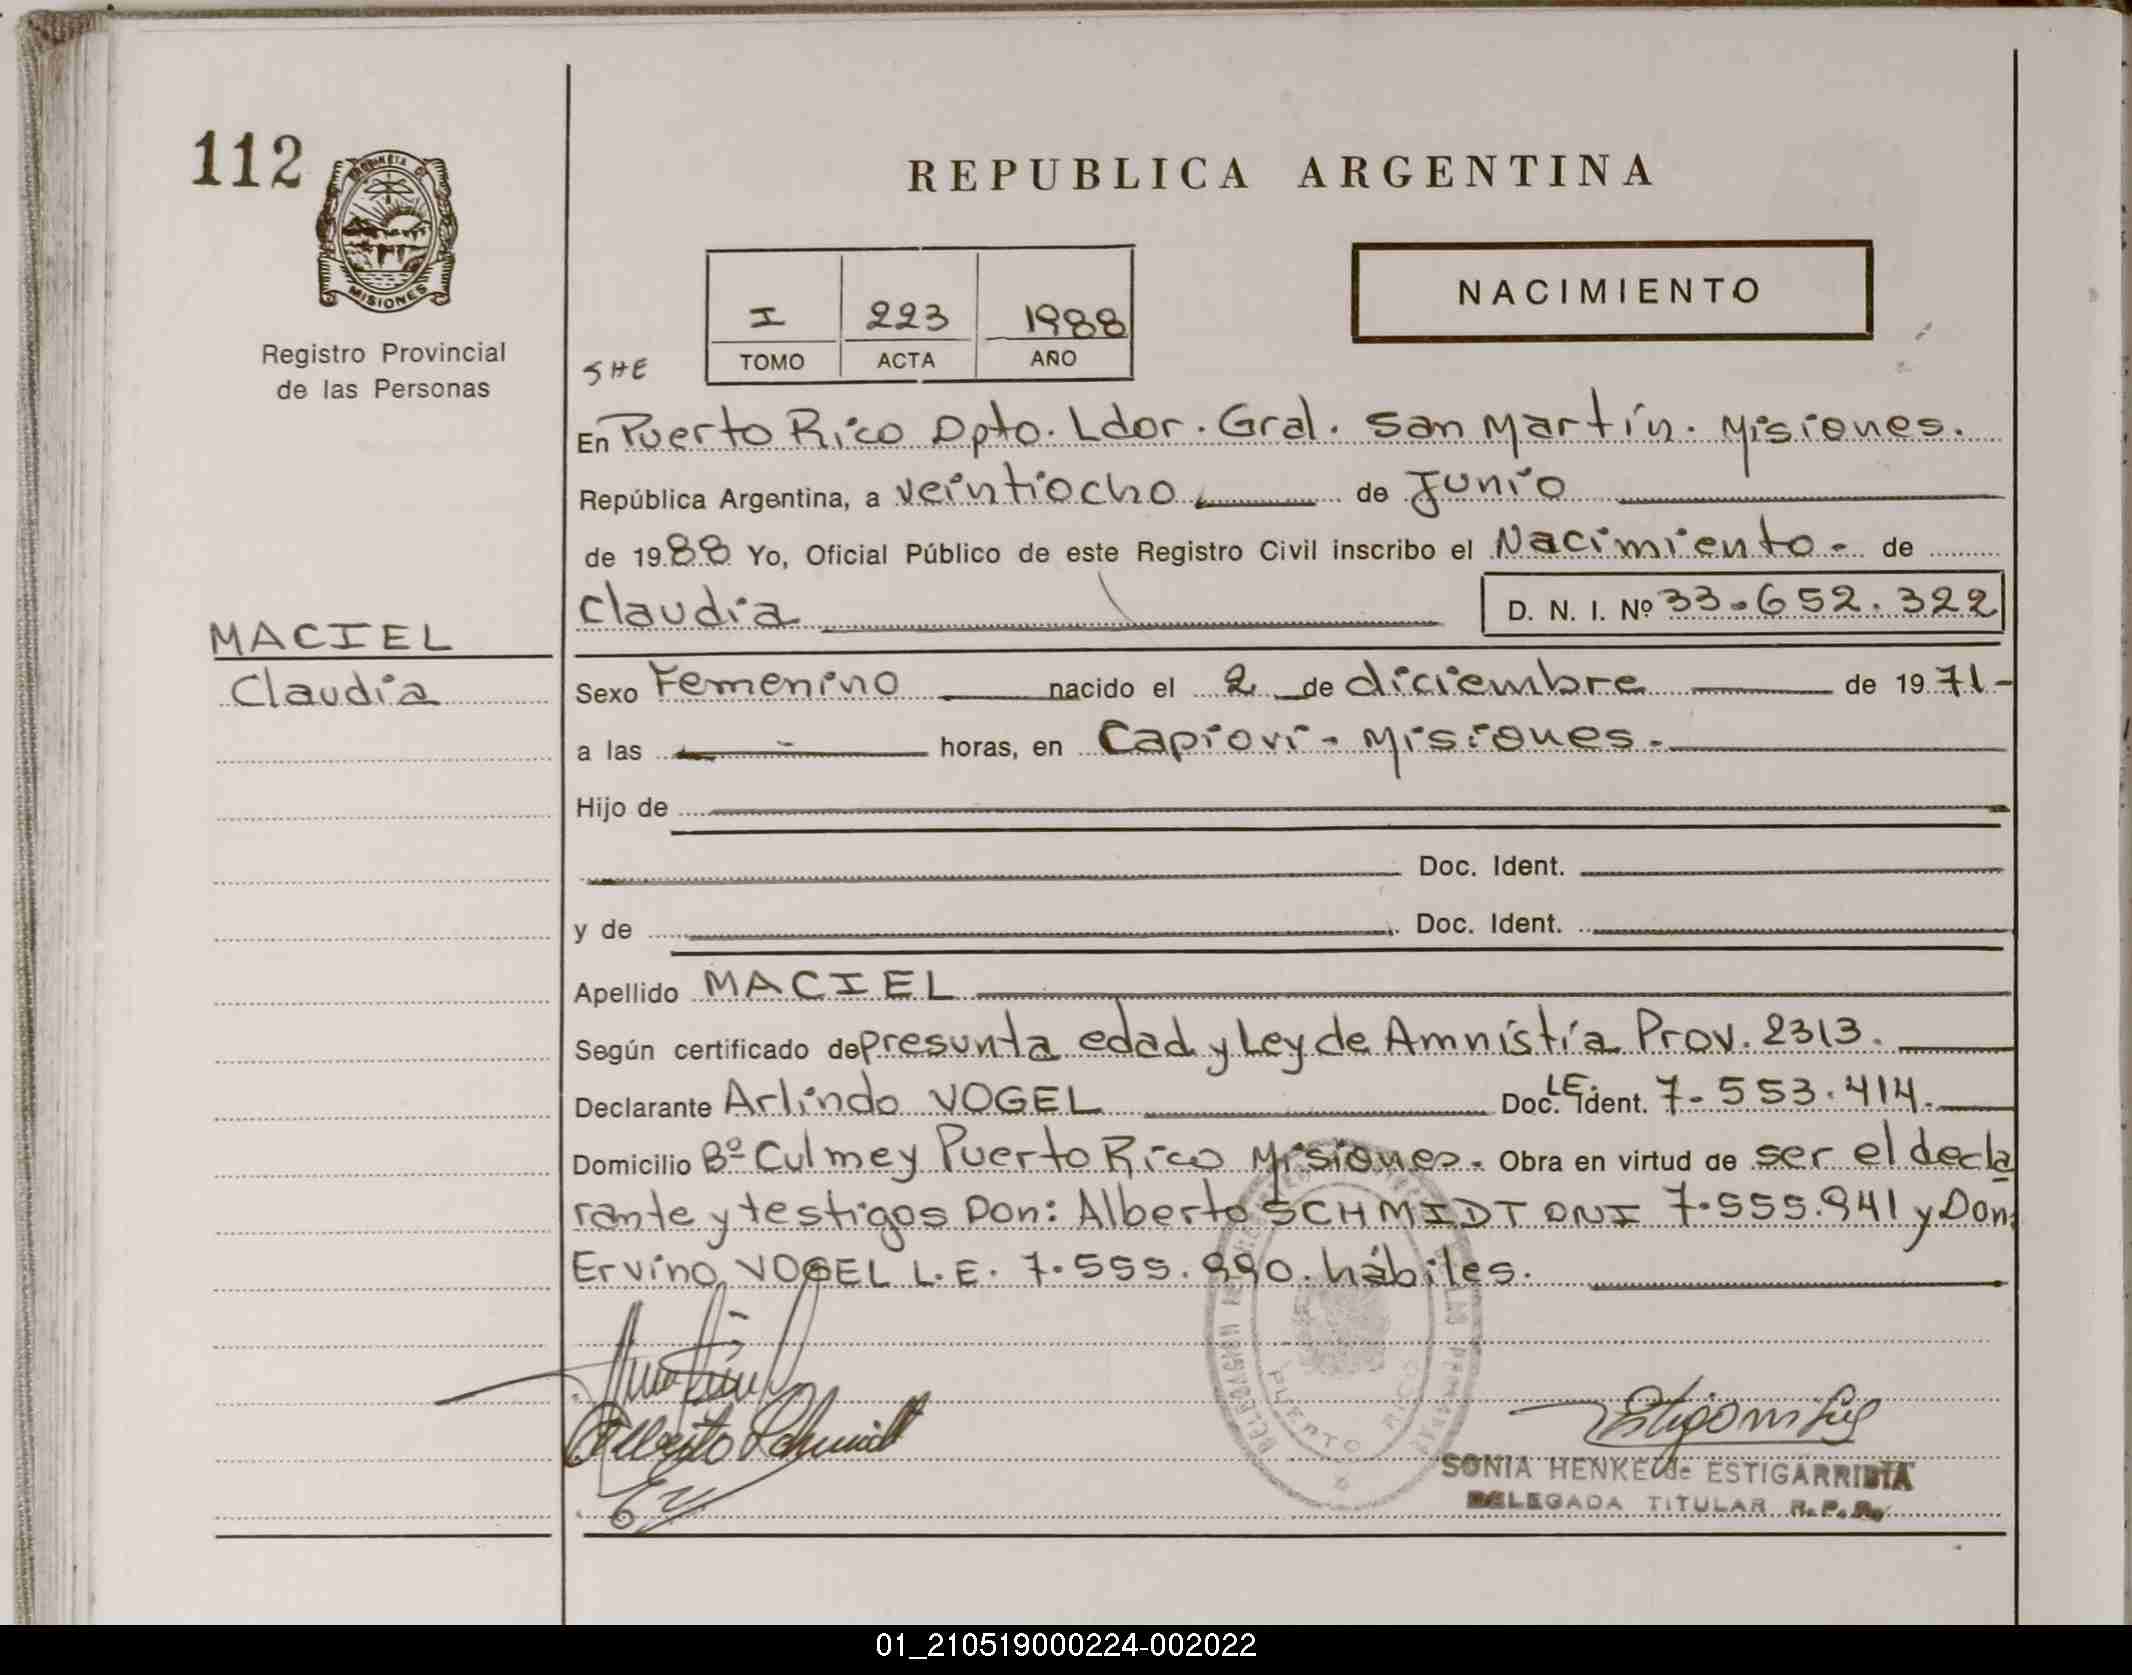 112
PROVINCIA DE
MISIONES
Registro Provincial
de las Personas
REPUBLICA ARGENTINA
I 223 1988
TOMO ACTA AÑO
NACIMIENTO
SHE
En Puerto Rico Dpto. Ldor. Gral. San Martín. Misiones.
República Argentina, a veintiocho de Junio
de 1988 Yo, Oficial Público de este Registro Civil inscribo el Nacimiento - de
Claudia D. N. I. Nº 33.652.322
MACIEL
Claudia
Sexo Femenino nacido el 2 de diciembre de 1971-
a las horas, en Capiovi - Misiones.
Hijo de
Doc. Ident.
y de Doc. Ident.
Apellido MACIEL
Según certificado de presunta edad y Ley de Amnistía Prov. 2313.
Declarante Arlindo VOGEL Doc. Ident. L.E. 7.553.414.
Domicilio Bº Culmey Puerto Rico Misiones. Obra en virtud de ser el decla
rante y testigos Don: Alberto SCHMIDT DNI 7.555.941 y Don:
Ervino VOGEL L.E. 7.555.990. hábiles.
Alberto Schmidt
PUERTO RICO
SONIA HENKE de ESTIGARRIBIA
DELEGADA TITULAR R.P.P.
01_210519000224-002022